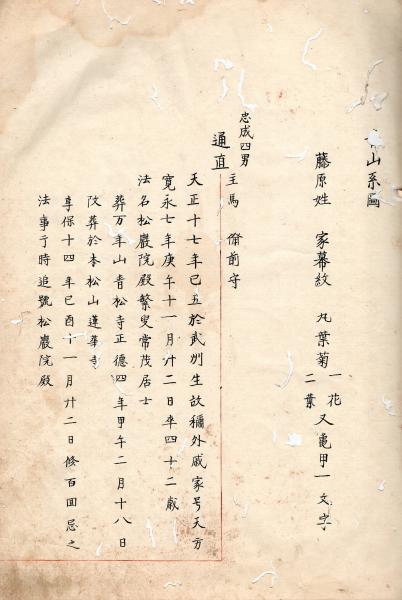 山系圖
藤原姓 家幕紋 丸葉菊一花二葉 又龜甲一文字
忠成四男
通直 主馬 備前守
天正十七年己丑於武州生故稱外戚家号天方
寛永七年庚午十一月廿二日卒四十二歳
法名松巖院殿繁叟常茂居士
葬万年山青松寺正德四年甲午二月十八日
改葬於本松山蓮華寺
享保十四年己酉十一月廿二日修百回忌之
法事于時追號松巖院殿